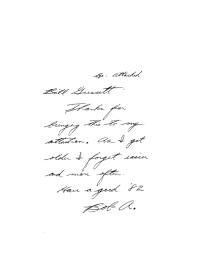 Bill
Thanks for
bringing this to my
attention. As I get
older I forget easier
and more often
Have a good '82
Bob A.